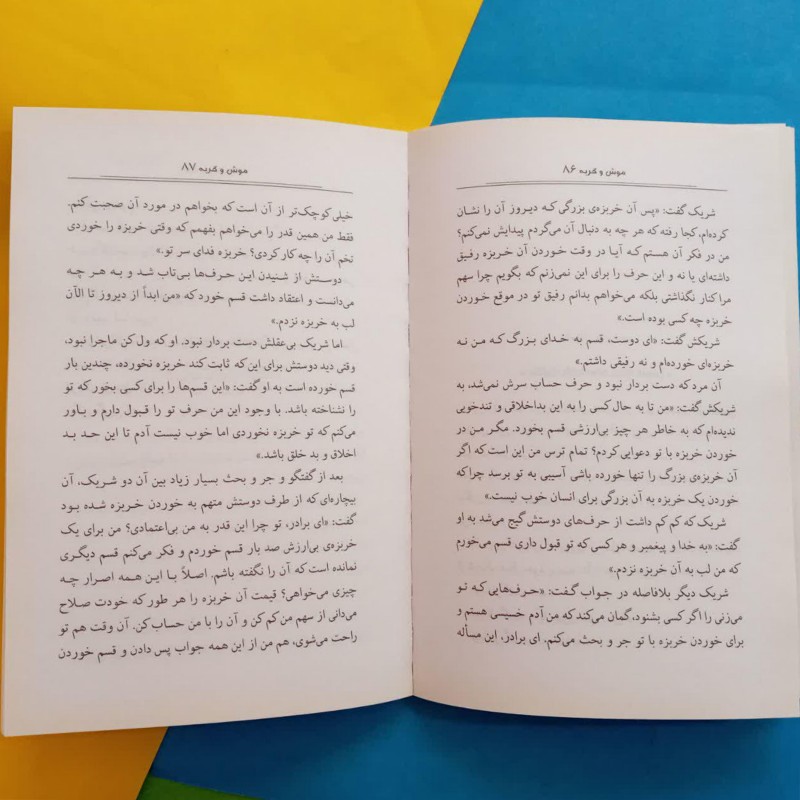 موش و گربه ۸۶
شریک گفت: «پس آن خربزه‌ی بزرگی که دیروز آن را نشان
کرده‌ام، کجا رفته که هر چه به دنبال آن می‌گردم پیدایش نمی‌کنم؟
من در فکر آن هستم که آیا در وقت خوردن آن خربزه رفیق
داشته‌ای یا نه و این حرف را برای این نمی‌زنم که بگویم چرا سهم
مرا کنار نگذاشتی بلکه می‌خواهم بدانم رفیق تو در موقع خوردن
خربزه چه کسی بوده است.»
شریکش گفت: «ای دوست، قسم به خدای بزرگ که من نه
خربزه‌ای خورده‌ام و نه رفیقی داشتم.»
آن مرد که دست بردار نبود و حرف حساب سرش نمی‌شد، به
شریکش گفت: «من تا به حال کسی را به این بداخلاقی و تندخویی
ندیده‌ام که به خاطر هر چیز بی‌ارزشی قسم بخورد. مگر من در
خوردن خربزه با تو دعوایی کردم؟ تمام ترس من این است که اگر
آن خربزه‌ی بزرگ را تنها خورده باشی آسیبی به تو برسد چرا که
خوردن یک خربزه به آن بزرگی برای انسان خوب نیست.»
شریک که کم کم داشت از حرف‌های دوستش گیج می‌شد به او
گفت: «به خدا و پیغمبر و هر کسی که تو قبول داری قسم می‌خورم
که من لب به آن خربزه نزده‌ام.»
شریک دیگر بلافاصله در جواب گفت: «حرف‌هایی که تو
می‌زنی را اگر کسی بشنود، گمان می‌کند که من آدم خسیسی هستم و
برای خوردن خربزه با تو جر و بحث می‌کنم. ای برادر، این مسأله
موش و گربه ۸۷
خیلی کوچک‌تر از آن است که بخواهم در مورد آن صحبت کنم.
فقط من همین قدر را می‌خواهم بفهمم که وقتی خربزه را خوردی
تخم آن را چه کار کردی؟ خربزه فدای سر تو.»
دوستش از شنیدن این حرف‌ها بی‌تاب شد و به هر چه
می‌دانست و اعتقاد داشت قسم خورد که «من ابداً از دیروز تا الآن
لب به خربزه نزدم.»
اما شریک بی‌عقلش دست بردار نبود. او که ول کن ماجرا نبود،
وقتی دید دوستش برای این‌که ثابت کند خربزه نخورده، چندین بار
قسم خورده است به او گفت: «این قسم‌ها را برای کسی بخور که تو
را نشناخته باشد. با وجود این من حرف تو را قبول دارم و باور
می‌کنم که تو خربزه نخوردی اما خوب نیست آدم تا این حد بد
اخلاق و بد خلق باشد.»
بعد از گفتگو و جر و بحث بسیار زیاد بین آن دو شریک، آن
بیچاره‌ای که از طرف دوستش متهم به خوردن خربزه شده بود
گفت: «ای برادر، تو چرا این قدر به من بی‌اعتمادی؟ من برای یک
خربزه‌ی بی‌ارزش صد بار قسم خوردم و فکر می‌کنم قسم دیگری
نمانده است که آن را نگفته باشم. اصلاً با این همه اصرار چه
چیزی می‌خواهی؟ قیمت آن خربزه را هر طور که خودت صلاح
می‌دانی از سهم من کم کن و آن را با من حساب کن. آن وقت هم تو
راحت می‌شوی، هم من از این همه جواب پس دادن و قسم خوردن